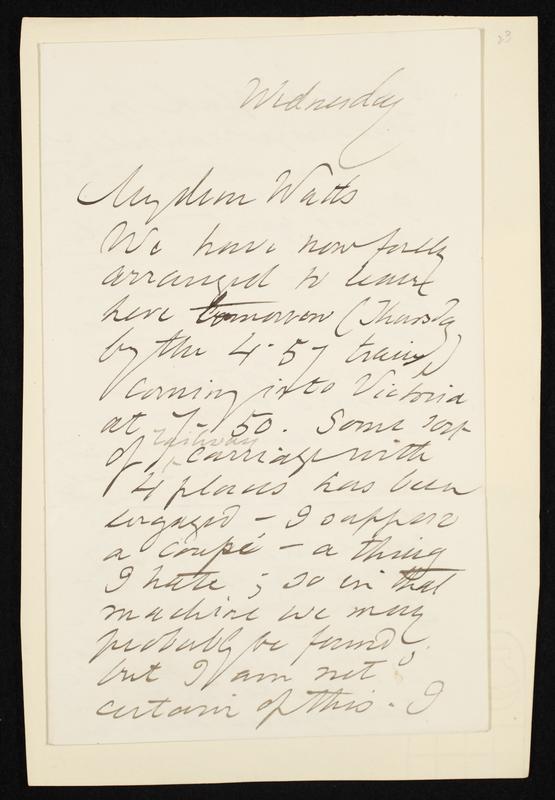 23
Wednesday
My dear Watts
We have now fully
arranged to leave
here tomorrow (Thursday)
by the 4·57 train
coming into Victoria
at 7·50. Some sort
railway
of ^ carriage with
4 places has been
engaged – I suppose
a coupé – a thing
I hate; so in that
machine we may
probably be found,
but I am not
certain of this. I